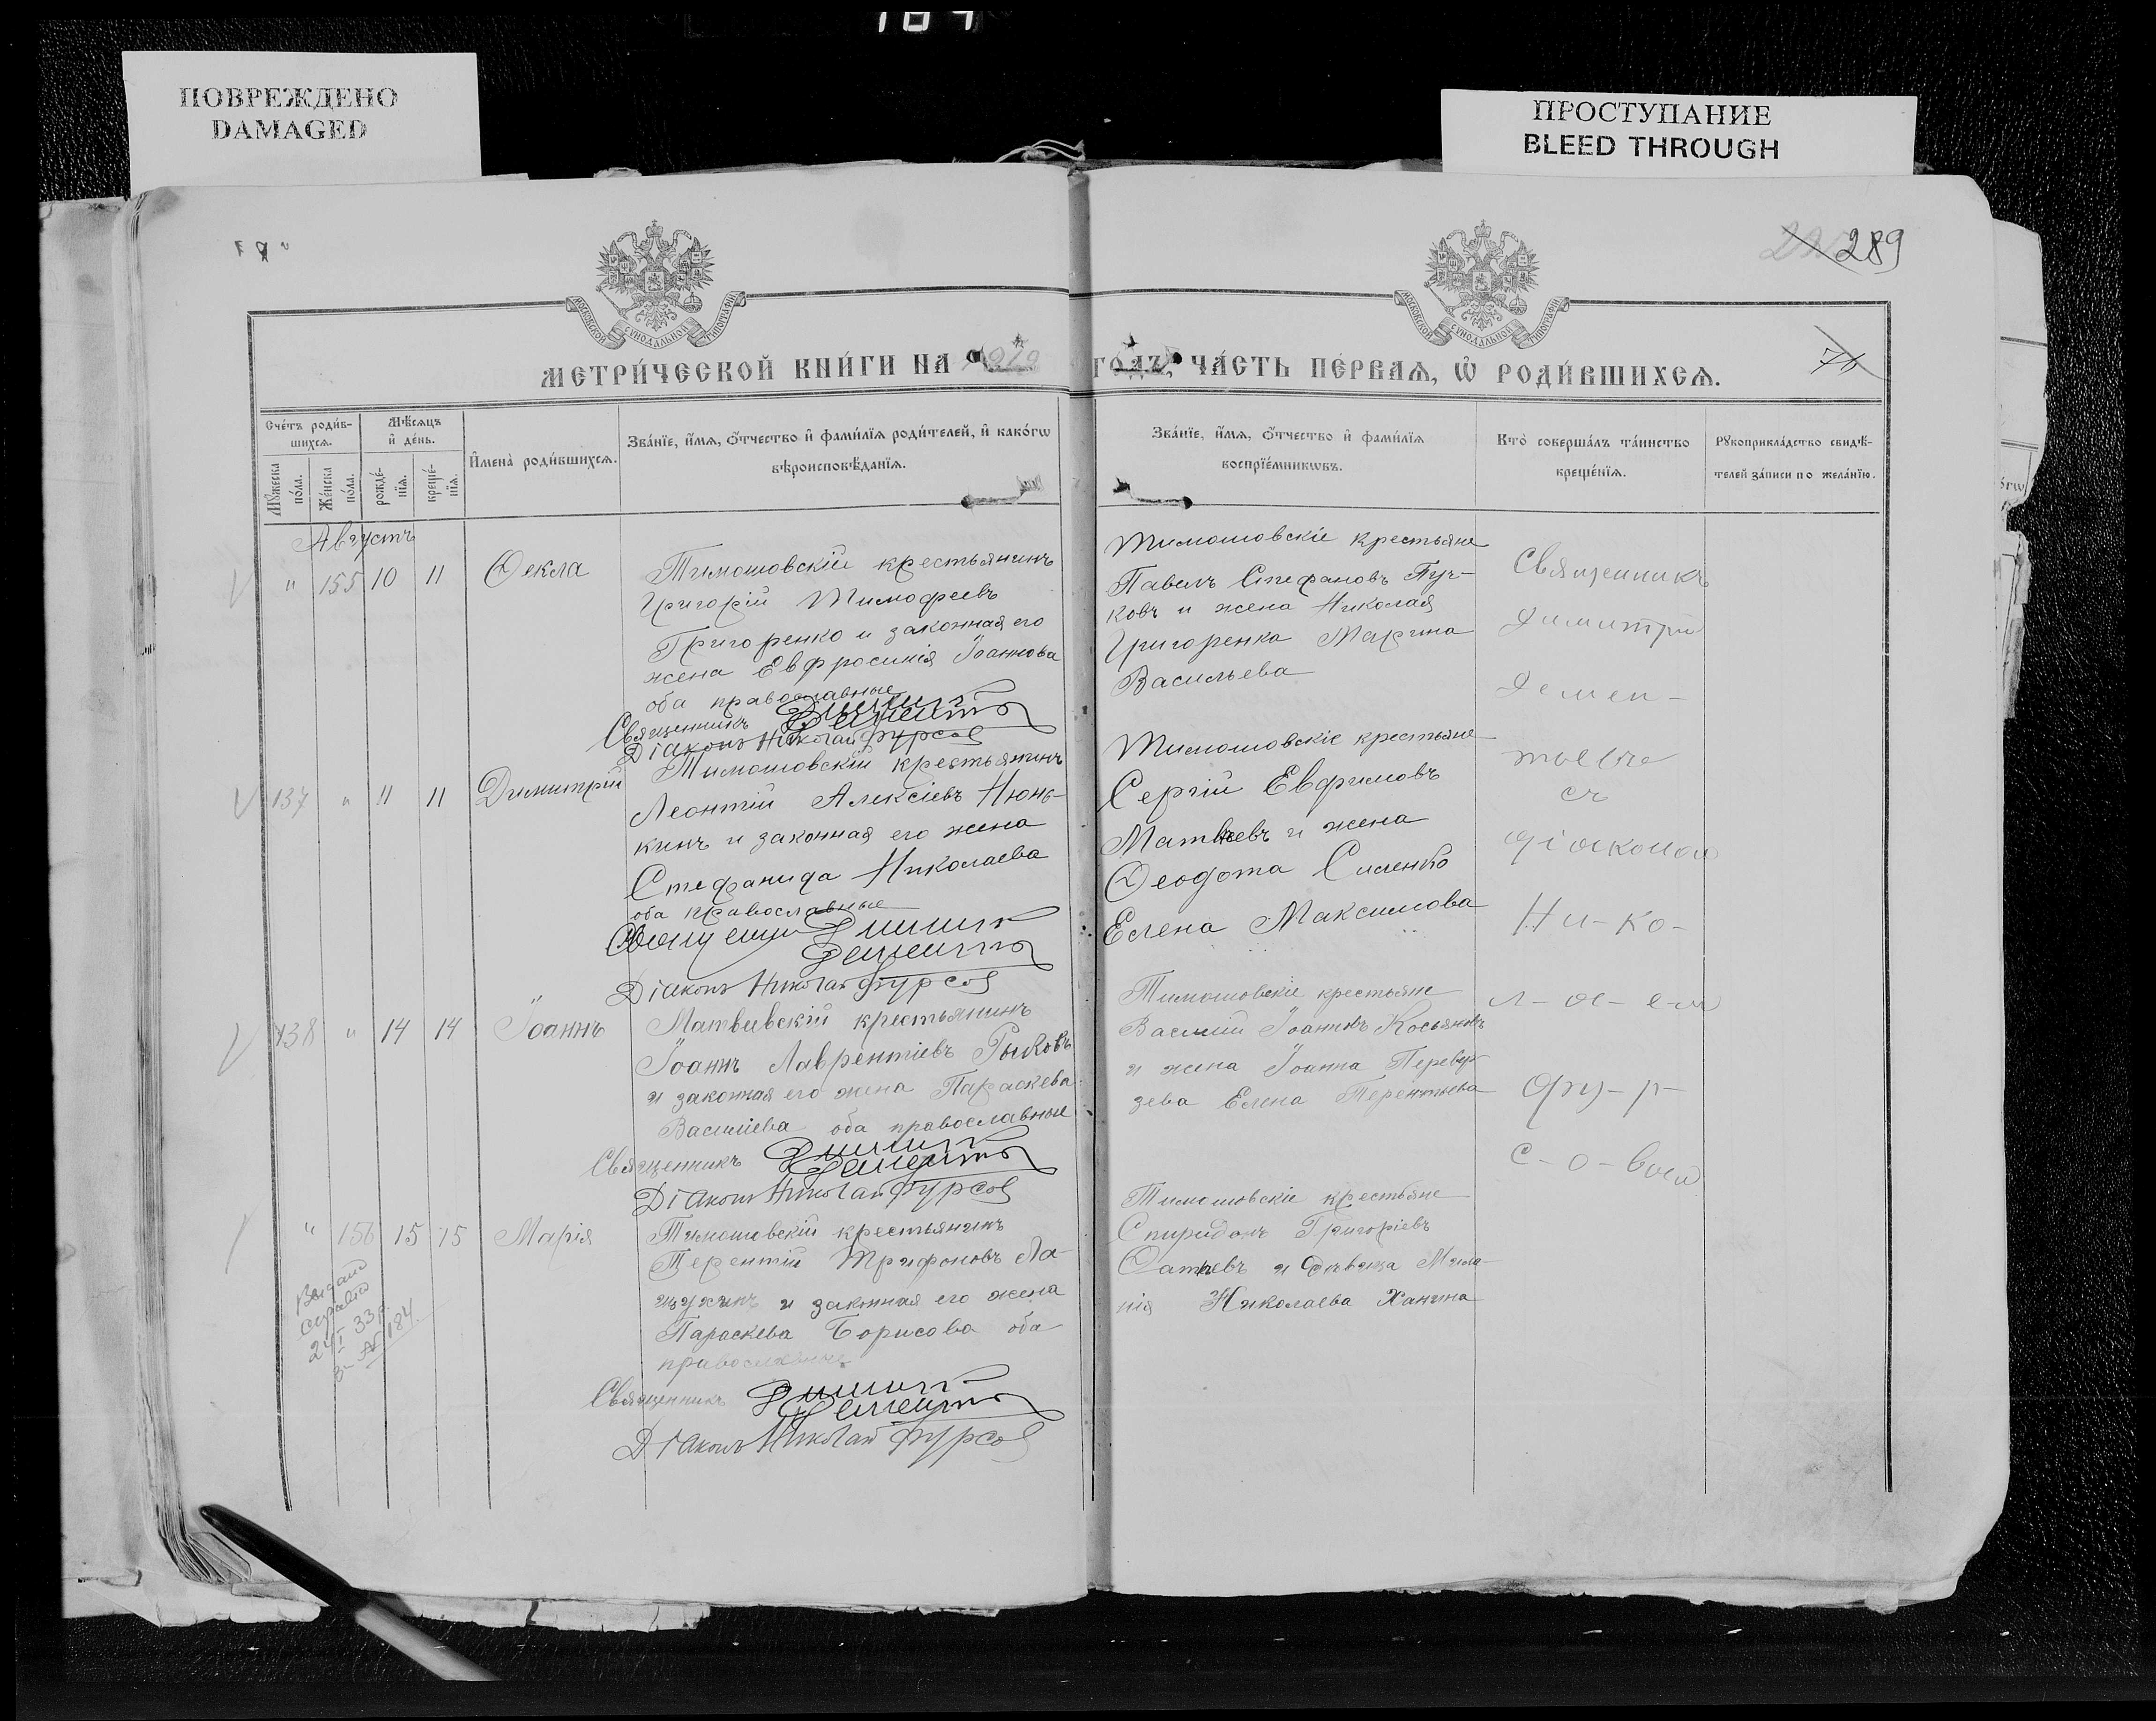 ПОВРЕЖДЕНО
DAMAGED
ПРОСТУПАНИЕ
BLEED THROUGH
289
МОСКОВСКОЙ СѴНОДАЛЬНОЙ ТИПОГРАФІИ
МОСКОВСКОЙ СѴНОДАЛЬНОЙ ТИПОГРАФІИ
МЕТРИ́ЧЕСКОЙ КНИ́ГИ НА
ГО́ДЪ, ЧА́СТЬ ПЕ́РВАѦ, Ѽ РОДИ́ВШИХСѦ.
76
Сче́тъ роди́в-
шихсѧ.
Мѣ́сѧцъ
и҆ де́нь.
Мꙋ́жеска
по́ла.
Же́нска
по́ла.
рожде́-
нїѧ.
креще́-
нїѧ.
И҆мена̀ роди́вшихсѧ.
Зва́нїе, и҆́мѧ, ѻ҆́тчество и҆ фами́лїѧ роди́телей, и҆ како́гѡ
вѣроисповѣ́данїѧ.
Зва́нїе, и҆́мѧ, ѻ҆́тчество и҆ фами́лїѧ
воспрїе́мникѡвъ.
Кто̀ соверша́лъ та́инство
креще́нїѧ.
Рꙋкоприкла́дство свидѣ́-
телей за́писи по жела́нїю.
Августъ
" 155 10 11 Ѳекла
Тимошовскій крестьянинъ
Григорій Тимофеевъ
Григоренко и законная его
жена Евфросинія Іоаннова
оба православные
Священникъ Димитрій
Дементьевъ
Діаконъ Николай Фурсов
Тимошовскіе крестьяне
Павелъ Стефановъ Пуч-
ковъ и жена Николая
Григоренка Марина
Васильева
137 " 11 11 Димитрій
Тимошовскій крестьянинъ
Леонтій Алексіевъ Нюнь-
кинъ и законная его жена
Стефанида Николаева
оба православные
Священникъ Димитрій
Дементьевъ
Діаконъ Николай Фурсов
Тимошовскіе крестьяне
Сергій Евфимовъ
Матвеевъ и жена
Ѳеодота Силенко
Елена Максимова
138 " 14 14 Іоаннъ
Матвевскій крестьянинъ
Іоаннъ Лаврентіевъ Рыковъ
и законная его жена Параскева
Василіева оба православные
Священникъ Димитрій
Дементьевъ
Діаконъ Николай Фурсов
Тимошовскіе крестьяне
Василій Іоанновъ Косьяновъ
и жена Іоанна Перевер-
зева Елена Терентьева
" 156 15 15 Марія
Тимошовскій крестьянинъ
Терентій Трифоновъ Ла-
и законная его жена
Параскева Борисова оба
православные
Священникъ Димитрій
Дементьевъ
Діаконъ Николай Фурсов
Тимошовскіе крестьяне
Спиридонъ Григоріевъ
и девица Мила-
нія Николаева Ханина
Священникъ
Димитрій
Демен-
тьевъ
съ
діакономъ
Ни-ко-
л-а-емъ
Фу-р-
с-о-вымъ
Выдано
24/I 33 г.
№ 184